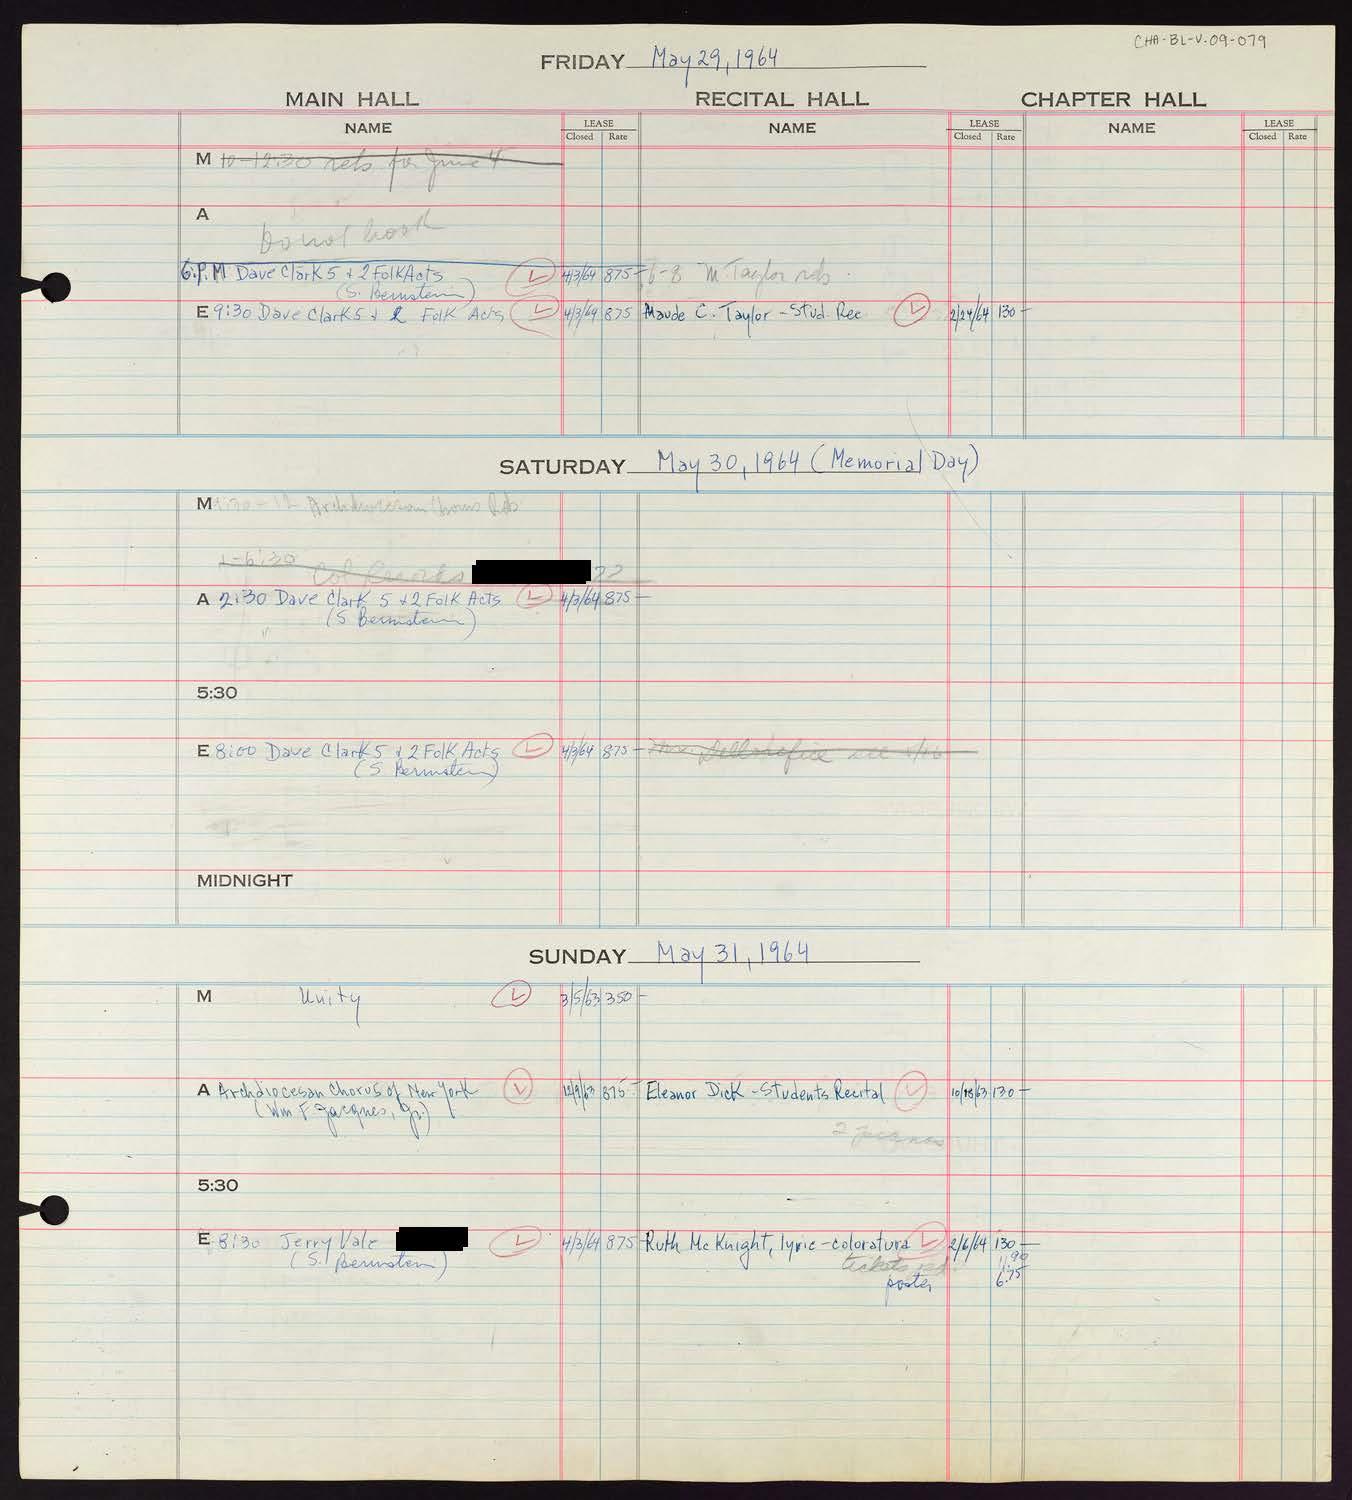 CHA-BL-V.09-079
FRIDAY May 29, 1964
MAIN HALL RECITAL HALL CHAPTER HALL
NAME LEASE NAME LEASE NAME LEASE
Closed Rate Closed Rate Closed Rate
M 10-12:30 rehs for June 4
A
Do not book
6:P.M Dave Clark 5 + 2 Folk Acts 4/3/64 875- 6-8 M Taylor reh.
(S. Bernstein)
E 9:30 Dave Clark 5 + 2 Folk Acts 4/3/64 875 Maude C. Taylor - Stud. Rec 2/24/64 130-
SATURDAY May 30, 1964 (Memorial Day)
M 9:30-12 Archdiocesan Chorus Reh
2-6:30 Col
A 2:30 Dave Clark 5 + 2 Folk Acts 4/3/64 875-
(S Bernstein)
5:30
E 8:00 Dave Clark 5 + 2 Folk Acts 4/3/64 875-
(S Bernstein)
MIDNIGHT
SUNDAY May 31, 1964
M Unity 3/5/63 350-
A Archdiocesan Chorus of New York 12/9/63 875- Eleanor Dick - Students Recital 10/18/63 130-
(Wm F. Jacques, Jr.)
2 pianos
5:30
E 8:30 Jerry Vale 4/3/64 875- Ruth McKnight, lyric-coloratura 2/6/64 130-
(S. Bernstein) tickets 1.90
poster 6.75